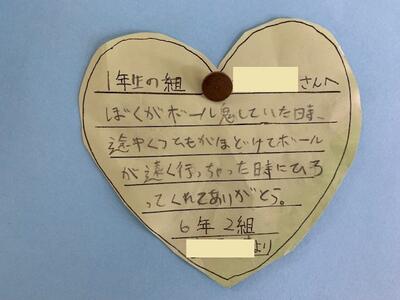 1年生の組 さんへ
ぼくがボール鬼していた時、
途中くつひもがほどけてボール
が遠く行っちゃった時にひろ
ってくれてありがとう。
6年2組
より